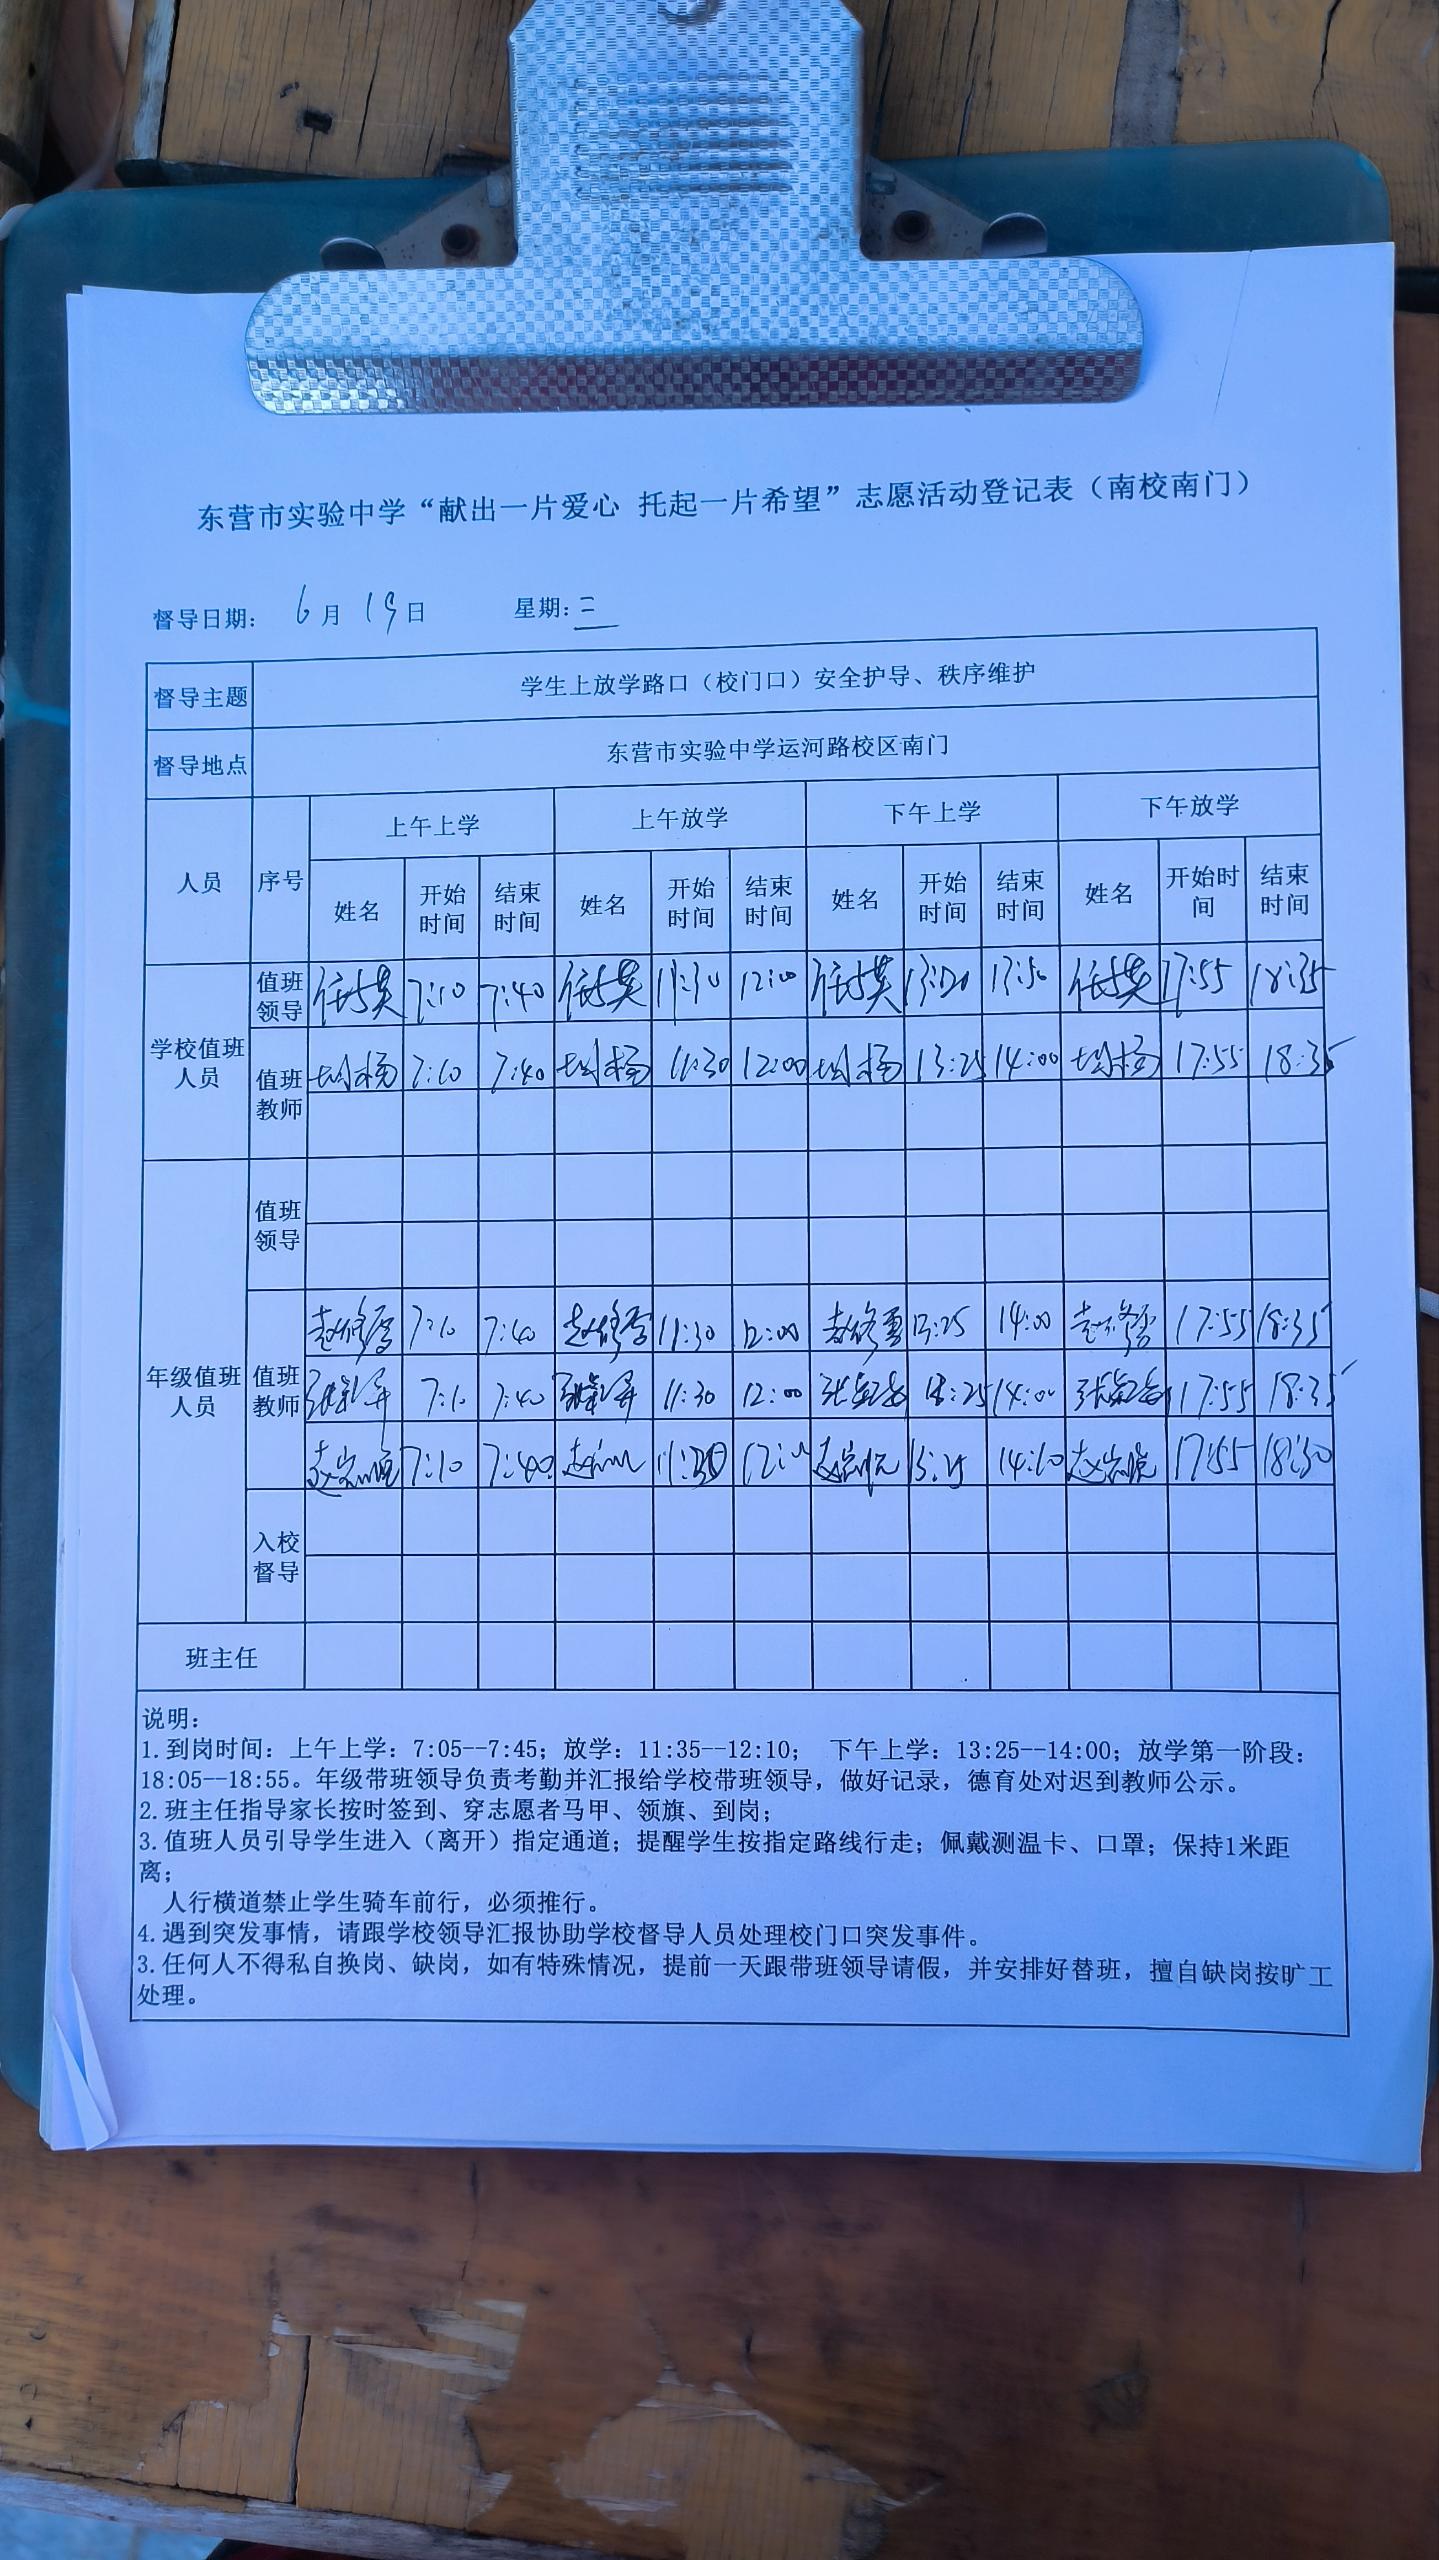 东营市实验中学“献出一片爱心 托起一片希望”志愿活动登记表（南校南门）
督导日期： 6月19日 星期：三
督导主题 学生上放学路口（校门口）安全护导、秩序维护
督导地点 东营市实验中学运河路校区南门
人员 序号 上午上学 上午放学 下午上学 下午放学
姓名 开始时间 结束时间 姓名 开始时间 结束时间 姓名 开始时间 结束时间 姓名 开始时间 结束时间
学校值班人员 值班领导 7:10 7:40 11:30 12:00 13:20 13:50 17:55 18:35
值班教师 7:10 7:40 11:30 12:00 13:25 14:00 17:55 18:35
年级值班人员 值班领导
值班教师 7:10 7:40 11:30 12:00 13:25 14:00 17:55 18:35
7:10 7:40 11:30 12:00 13:25 14:00 17:55 18:35
7:10 7:40 11:30 14:10 17:55 18:30
入校督导
班主任
说明：
1.到岗时间：上午上学：7:05--7:45；放学：11:35--12:10； 下午上学：13:25--14:00；放学第一阶段：
18:05--18:55。年级带班领导负责考勤并汇报给学校带班领导，做好记录，德育处对迟到教师公示。
2.班主任指导家长按时签到、穿志愿者马甲、领旗、到岗；
3.值班人员引导学生进入（离开）指定通道；提醒学生按指定路线行走；佩戴测温卡、口罩；保持1米距
离；
人行横道禁止学生骑车前行，必须推行。
4.遇到突发事情，请跟学校领导汇报协助学校督导人员处理校门口突发事件。
3.任何人不得私自换岗、缺岗，如有特殊情况，提前一天跟带班领导请假，并安排好替班，擅自缺岗按旷工
处理。